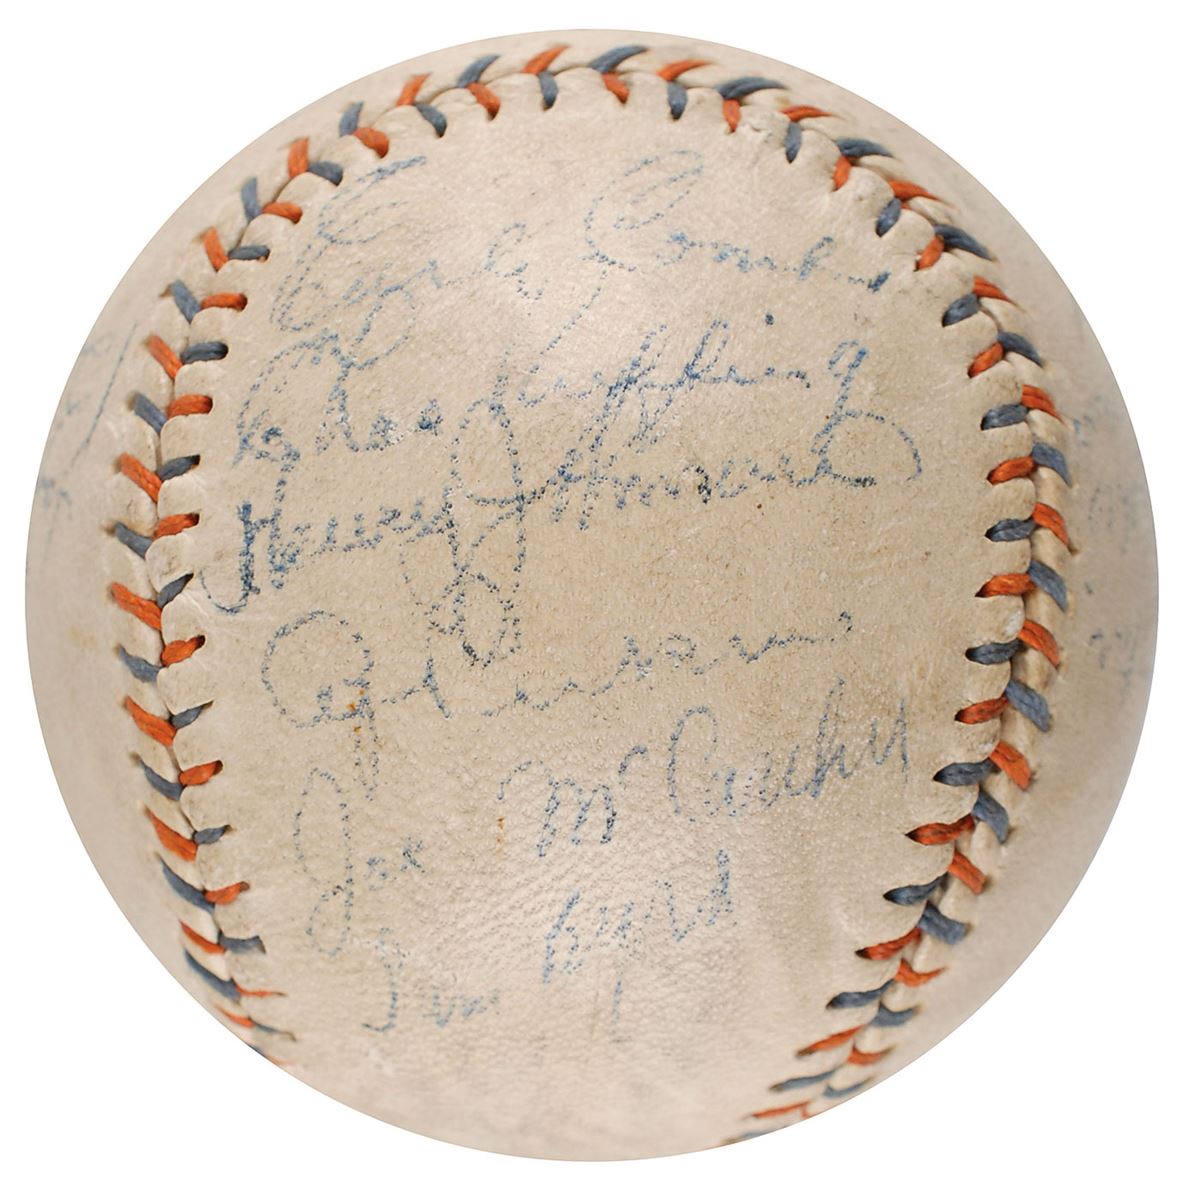 Earle Combs
Chas Ruffing
Henry Johnson
Cy Perkins
Joe McCarthy
Sam Byrd